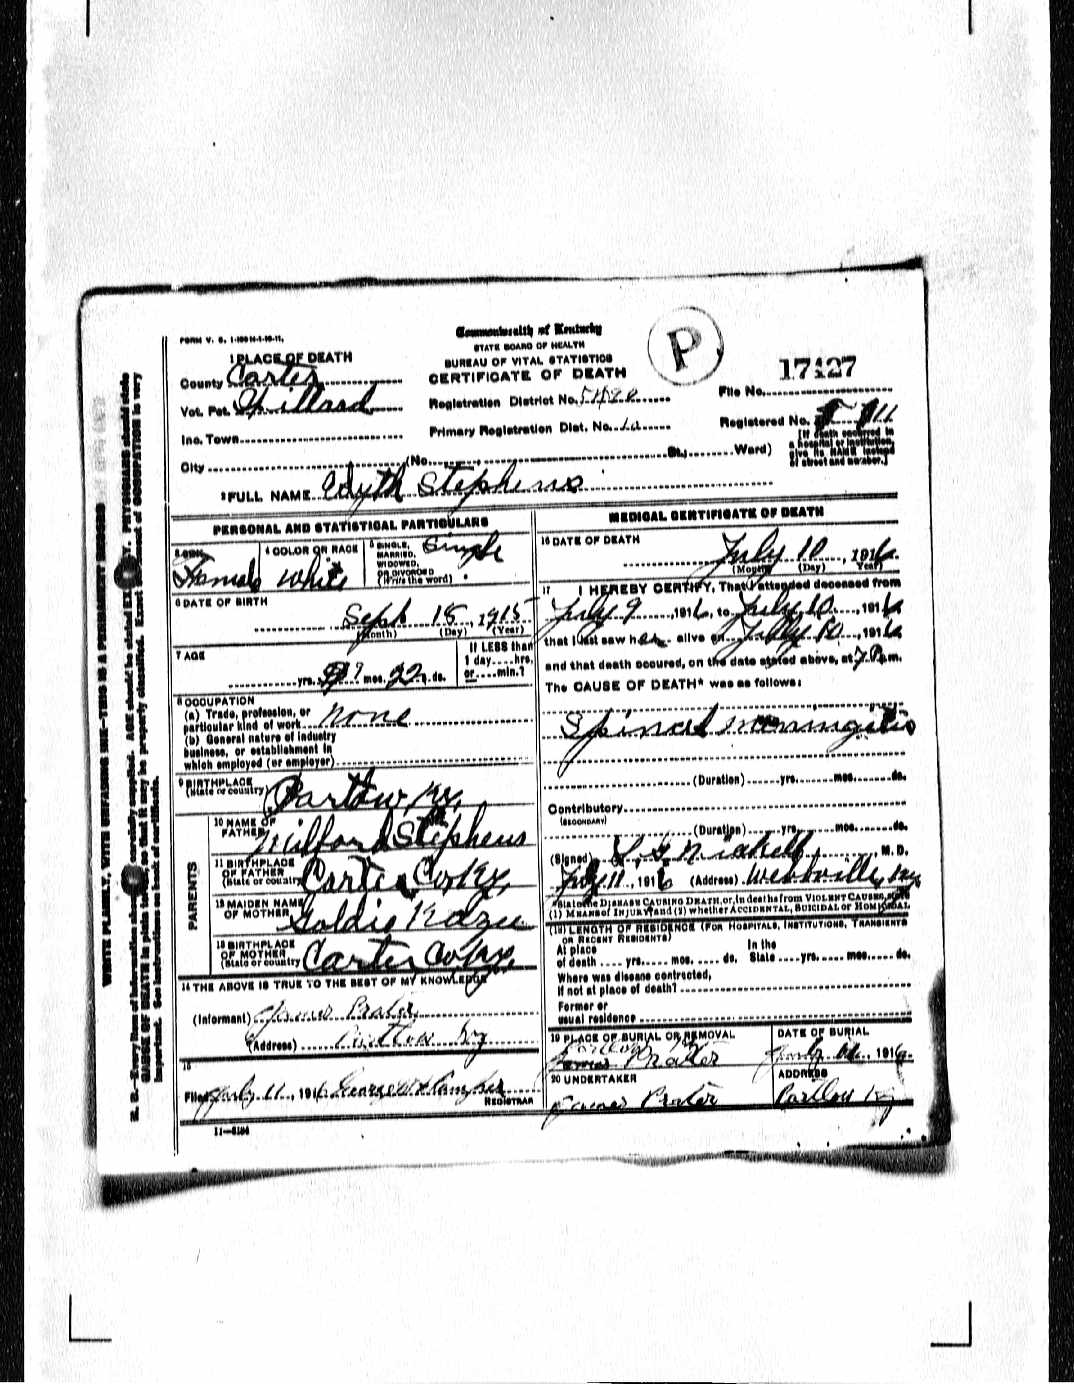 FORM V. S. 1-
Commonwealth of Kentucky
STATE BOARD OF HEALTH
BUREAU OF VITAL STATISTICS
CERTIFICATE OF DEATH
P
17427
File No.
1 PLACE OF DEATH
County Carter
Vot. Pct. Willard
Inc. Town
City (No. St., Ward)
Registration District No.
Primary Registration Dist. No.
Registered No.
[If death occurred in
a hospital or institution,
give its NAME instead
of street and number.]
2 FULL NAME Edyth Stephens
PERSONAL AND STATISTICAL PARTICULARS
3 SEX
Female
4 COLOR OR RACE
White
5 SINGLE,
MARRIED,
WIDOWED,
OR DIVORCED
(Write the word)
Single
6 DATE OF BIRTH
Sept 18, 1915
(Month) (Day) (Year)
7 AGE
yrs. 9 mos. 22 ds.
If LESS than
1 day....hrs.
or....min.?
8 OCCUPATION
(a) Trade, profession, or
particular kind of work none
(b) General nature of industry
business, or establishment in
which employed (or employer)
9 BIRTHPLACE
(State or country) Partlow Ky.
PARENTS
10 NAME OF
FATHER Milford Stephens
11 BIRTHPLACE
OF FATHER
(State or country) Carter Co Ky,
12 MAIDEN NAME
OF MOTHER Goldie
13 BIRTHPLACE
OF MOTHER
(State or country) Carter, Co Ky,
14 THE ABOVE IS TRUE TO THE BEST OF MY KNOWLEDGE
(Informant) James Prater
(Address) Partlow Ky
15
Filed July 11, 1916 George
REGISTRAR
11-
MEDICAL CERTIFICATE OF DEATH
16 DATE OF DEATH
July 10, 1916
(Month) (Day) Year)
17 I HEREBY CERTIFY, That I attended deceased from
July 9, 1916, to July 10, 1916
that I last saw her alive on July 10, 1916
and that death occured, on the date stated above, at 7 P.m.
The CAUSE OF DEATH* was as follows:
Spinal meningitis
(Duration) yrs. mos. ds.
Contributory
(SECONDARY)
(Duration) yrs. mos. ds.
(Signed) M.D.
July 11, 1916 (Address) Webbville, Ky
*State the DISEASE CAUSING DEATH, or, in deaths from VIOLENT CAUSES, state
(1) MEANS of INJURY; and (2) whether ACCIDENTAL, SUICIDAL or HOMICIDAL.
(18) LENGTH OF RESIDENCE (FOR HOSPITALS, INSTITUTIONS, TRANSIENTS
OR RECENT RESIDENTS)
At place In the
of death .... yrs. .... mos. .... ds. State .... yrs. .... mos. .... ds.
Where was disease contracted,
if not at place of death?
Former or
usual residence
19 PLACE OF BURIAL OR REMOVAL
Partlow
Prater
DATE OF BURIAL
1916
20 UNDERTAKER
James Prater
ADDRESS
Partlow Ky
WRITE PLAINLY, WITH UNFADING INK—THIS IS A PERMANENT RECORD
N. B.—Every item of information should be carefully supplied. AGE should be stated EXACTLY. PHYSICIANS should state
CAUSE OF DEATH in plain terms, so that it may be properly classified. Exact statement of OCCUPATION is very
important. See instructions on back of certificate.